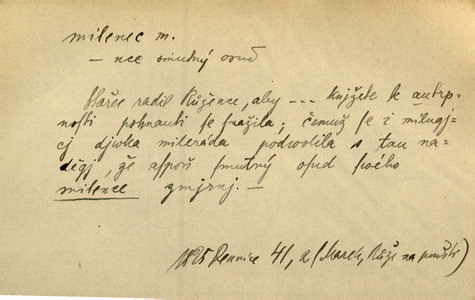 milenec m.
— nce smutný osud
Starec radil Růžence, aby --- knjžete k autrp-
nosti pohnauti se snažila; čemuž se i milugj-
cj djwka mileráda podwolila s tau na-
děgj, že aspoň smutný osud swého
milence zmjrnj. —
1825 Dennice 41, 2 (Marek, Růže na paušti)